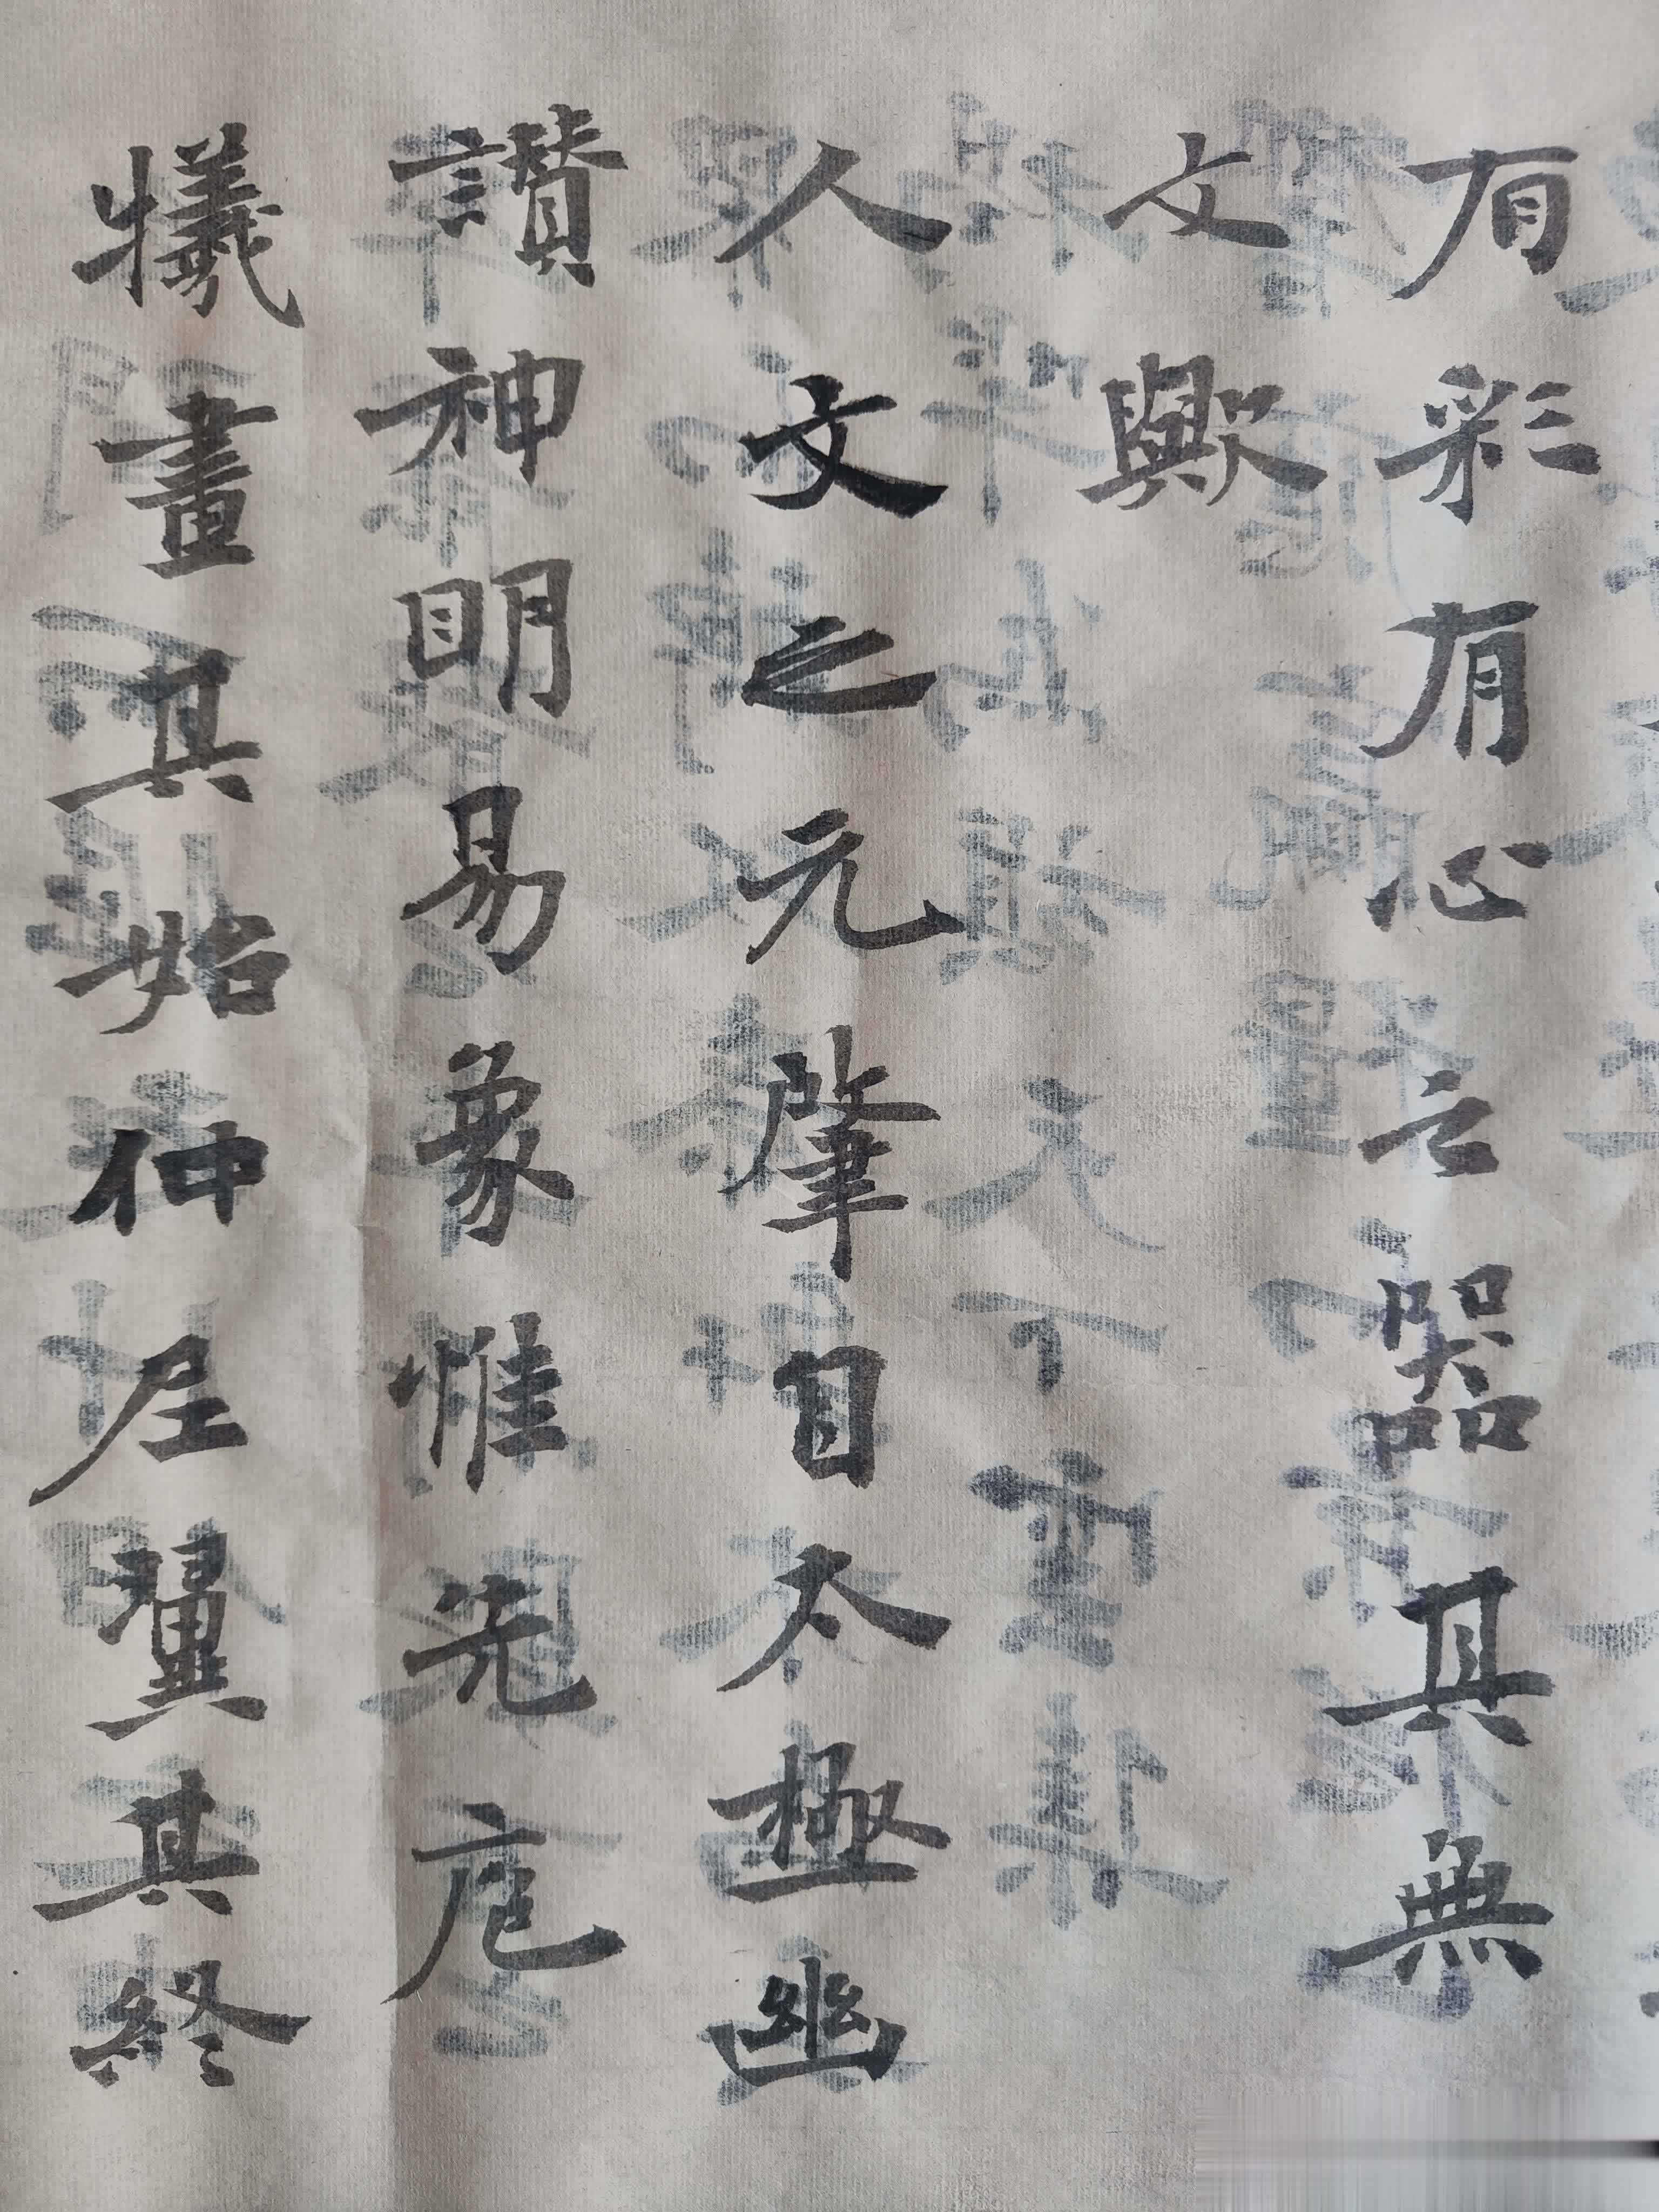 有彩有心之器其無
文歟
人文之元肇自太極幽
讚神明易象惟先庖
犧畫其始仲尼翼其終